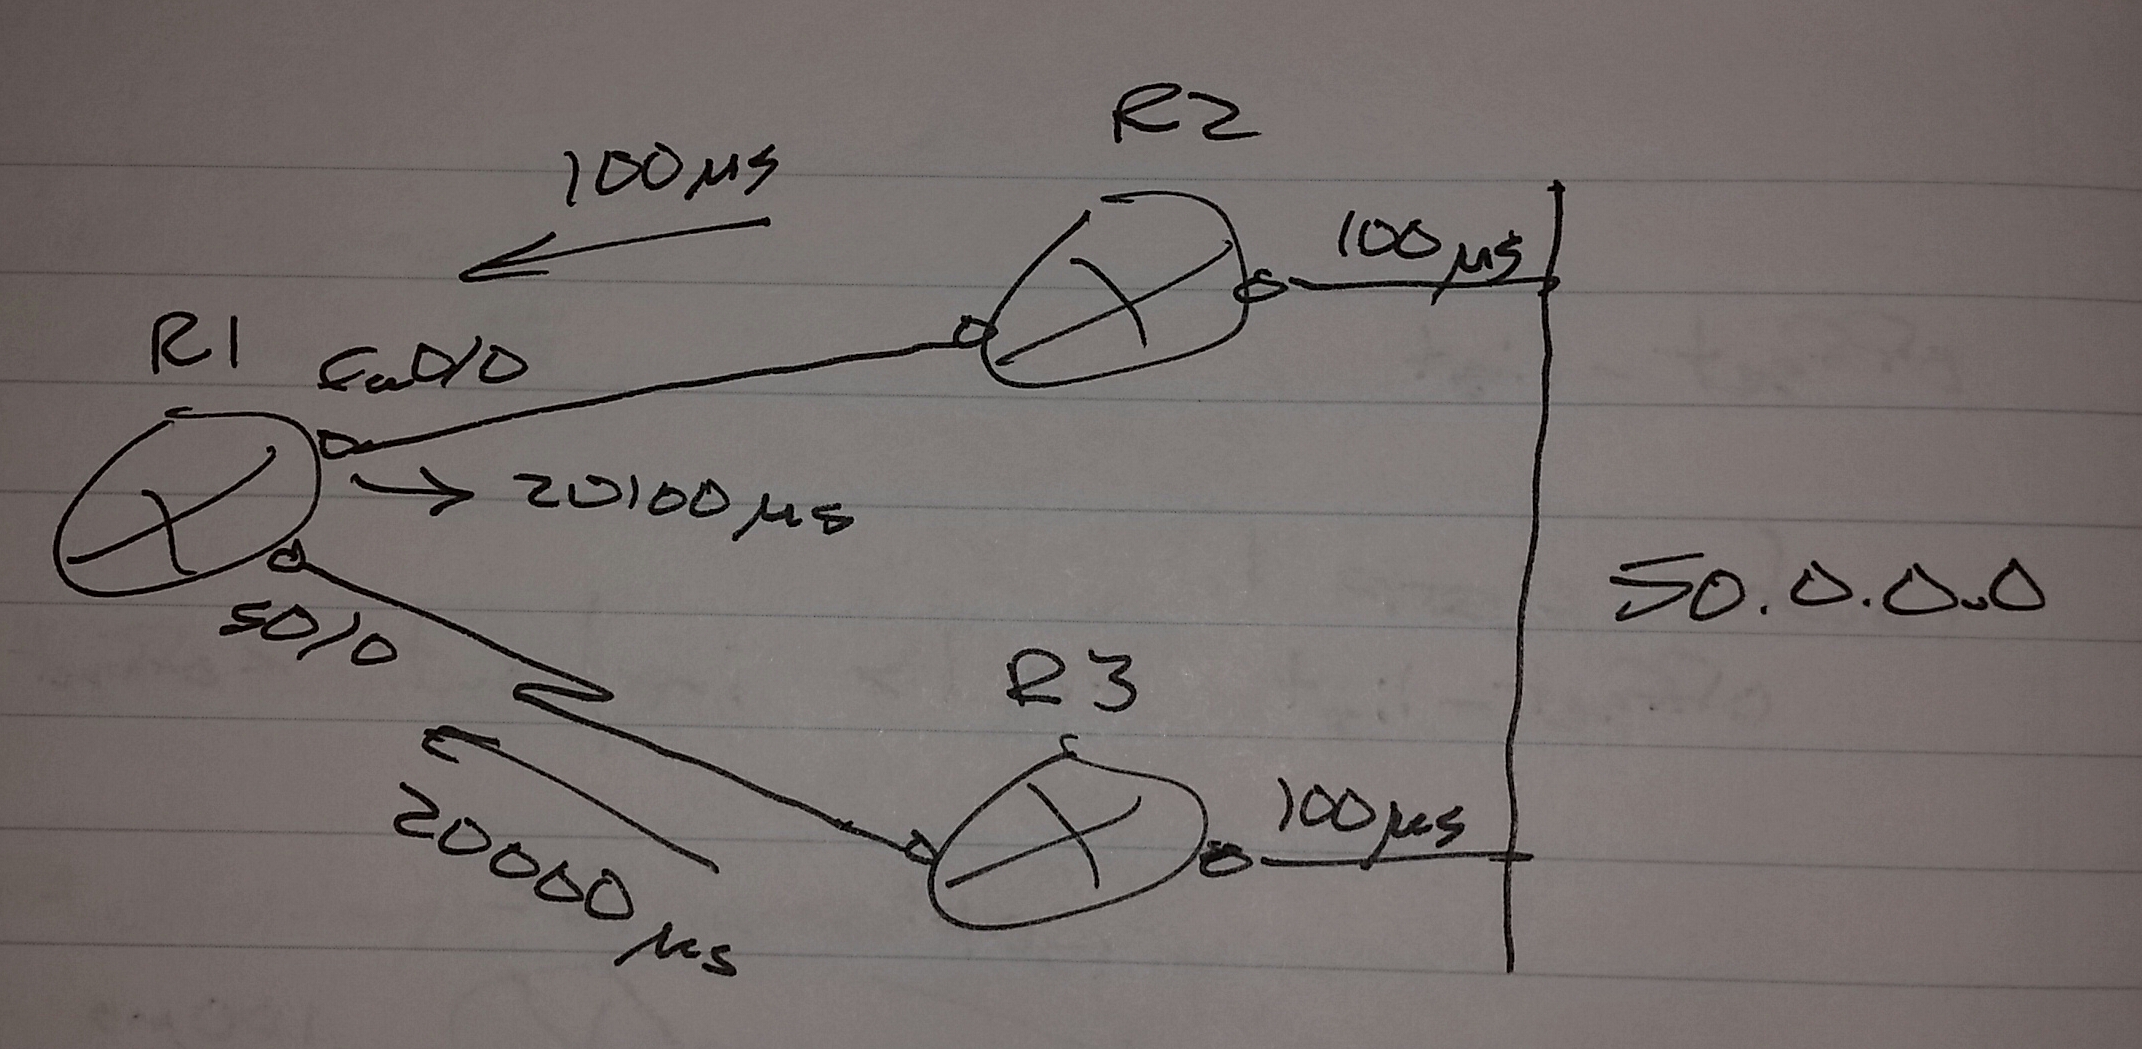 R2
100 µs
100 µs
R1
Fa0/0
20100 µs
50.0.0.0
S0/0
R3
100 µs
20000 µs